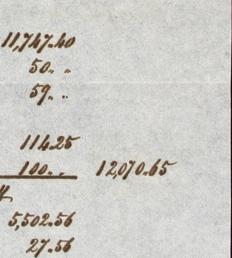 11,747.40
50. "
59. "
114.25
100. " 12,070.65
5,502.56
27.56